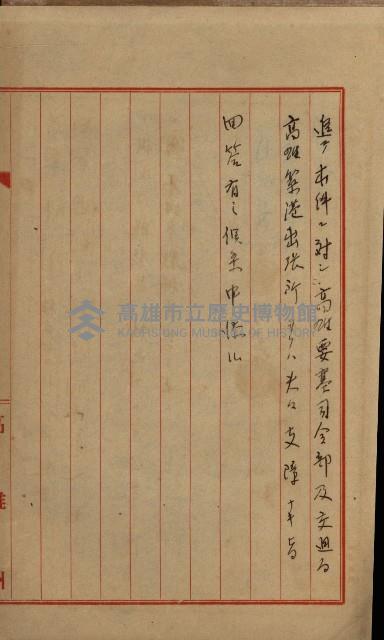 追テ本件ニ対シ高雄要塞司令部及交通局
高雄築港出張所ヨリハ夫々支障ナキ旨
回答有之候条申添フ
高雄州
高雄市立歷史博物館
KAOHSIUNG MUSEUM OF HISTORY